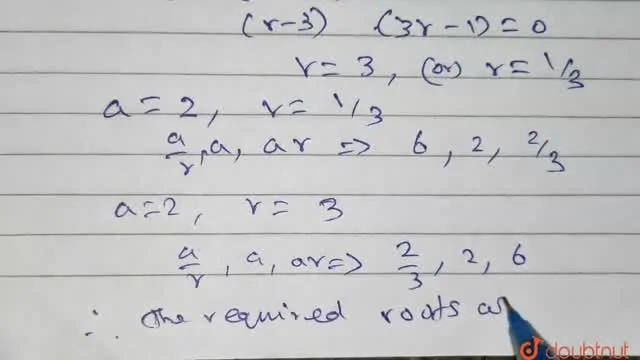 (r-3) (3r-1)=0
r=3, (or) r=1/3
a=2, r=1/3
a/r, a, ar => 6, 2, 2/3
a=2, r=3
a/r, a, ar=> 2/3, 2, 6
∴ the required roots
doubtnut